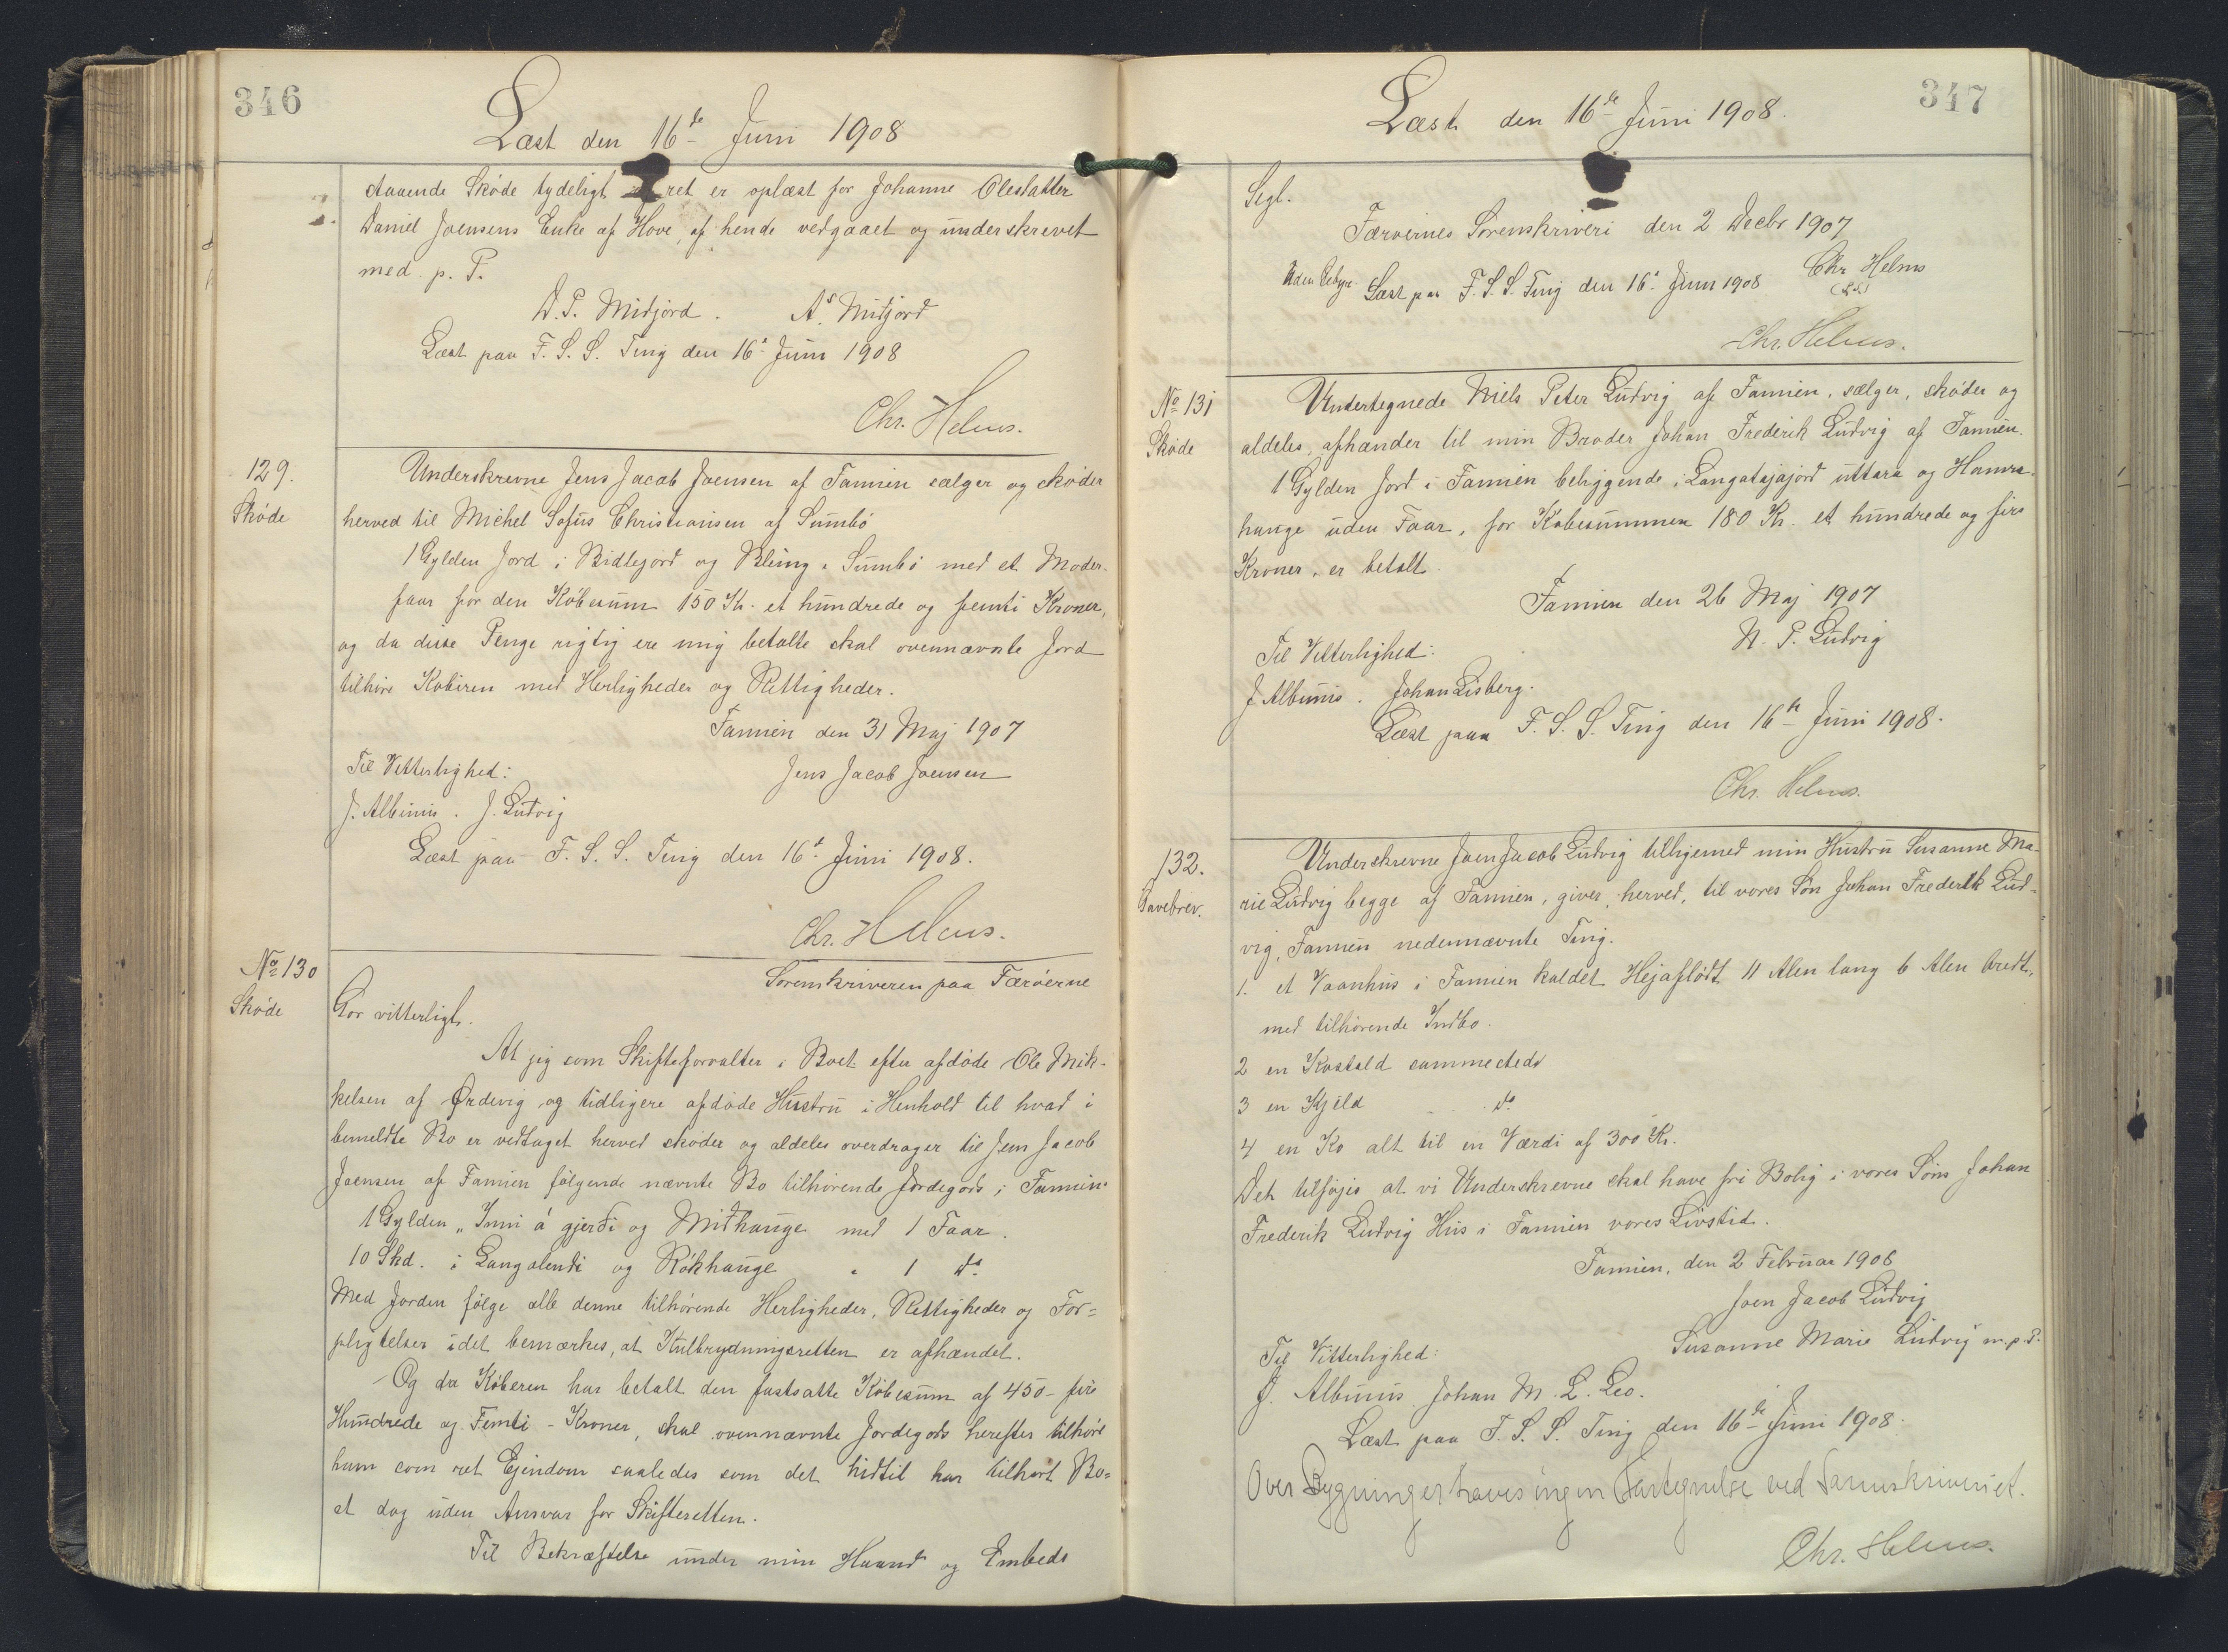 346
Læst den 16de Juni 1908
staaende Skøde tydeligt ret er oplæst for Johanne Olesdatter
Daniel Joensens Enke af Hove, af hende vedgaaet og underskrevet
med p. P.
D. P. Midjord. As. Midjord
Læst paa F. S. S. Ting den 16d Juni 1908
Chr. Helms.
129.
Skøde
Underskrevne Jens Jacob Joensen af Famien sælger og skøder
herved til Michel Sofus Christiansen af Sumbø
1 Gylden Jord i Bidlegjord og Bling i Sumbø med et Moder-
faar for den Købesum 150 Kr. et hundrede og femti Kroner,
og da disse Penge rigtig ere mig betalte skal ovennævnte Jord
tilhøre Køberen med Herligheder og Rettigheder.
Famien den 31 Maj 1907
Til Vitterlighed: Jens Jacob Joensen
J. Albinus. J. Ludvig
Læst paa F. S. S. Ting den 16d Juni 1908.
Chr. Helms.
No 130
Skøde
Sorenskriveren paa Færøerne
Gør vitterligt.
At jeg som Skifteforvalter i Boet efter afdøde Ole Mik-
kelsen af Ørdevig og tidligere afdøde Hustru i Henhold til hvad i
bemeldte Bo er vedtaget herved skøder og aldeles overdrager til Jens Jacob
Joensen af Famien følgende nævnte Bo tilhørende Jordegods i Famien:
1 Gylden „Inni á gjerði og Miðhauge med 1 Faar.
10 Skd. i Langalendi og Rókhauge " 1 do.
Med Jorden følge alle denne tilhørende Herligheder, Rettigheder og For=
pligtelser idet bemærkes, at Kulbrydningsretten er afhændet.
Og da Køberen har betalt den fastsatte Købesum af 450 - fire
Hundrede og Femti - Kroner, skal ovennævnte Jordegods herefter tilhøre
ham som ret Ejendom saaledes som det hidtil har tilhørt Bo=
et dog uden Ansvar for Skifteretten.
Til Bekræftelse under min Haand og Embeds
347
Læst den 16de Juni 1908.
Segl.
Færøernes Sorenskriveri den 2 Decbr 1907
Chr Helms
(L.S.)
Uden Gebyr. Læst paa F. S. S. Ting den 16d Juni 1908
Chr. Helms.
No 131
Skøde
Undertegnede Niels Peter Ludvig af Famien, sælger, skøder og
aldeles, afhænder til min Broder Johan Frederik Ludvig af Famien.
1 Gylden Jord i Famien beliggende i Langatajajord uttara og Hamra-
hauge uden Faar, for Købesummen 180 Kr. et hundrede og firs
Kroner, er betalt.
Famien den 26 Maj 1907
N. P. Ludvig
Til Vitterlighed:
J Albinus. Johan Lisberg.
Læst paa F. S. S. Ting den 16de Juni 1908.
Chr. Helms.
132.
Gavebrev.
Underskrevne Joen Jacob Ludvig tilligemed min Hustru Susanne Ma-
rie Ludvig begge af Famien, giver, herved, til vores Søn Johan Frederik Lud-
vig, Famien nedennævnte Ting.
1. et Vaanhus i Famien kaldet Hejafløðt 11 Alen lang 6 Alen bredt,
med tilhørende Indbo.
2 en Kostald sammesteds
3 en Kjeld do
4 en Ko alt til en Værdi af 300 Kr.
Det tilføjes at vi Underskrevne skal have fri Bolig i vores Søns Johan
Frederik Ludvig Hus i Famien vores Livstid.
Famien, den 2 Februar 1906
Joen Jacob Ludvig
Til Vitterlighed: Susanne Marie Ludvig m. p. P.
J. Albinus Johan M. L. Leo.
Læst paa F. S. S. Ting den 16de Juni 1908.
Over Bygninger haves ingen Fortegnelse ved Sorenskriveriet.
Chr. Helms.